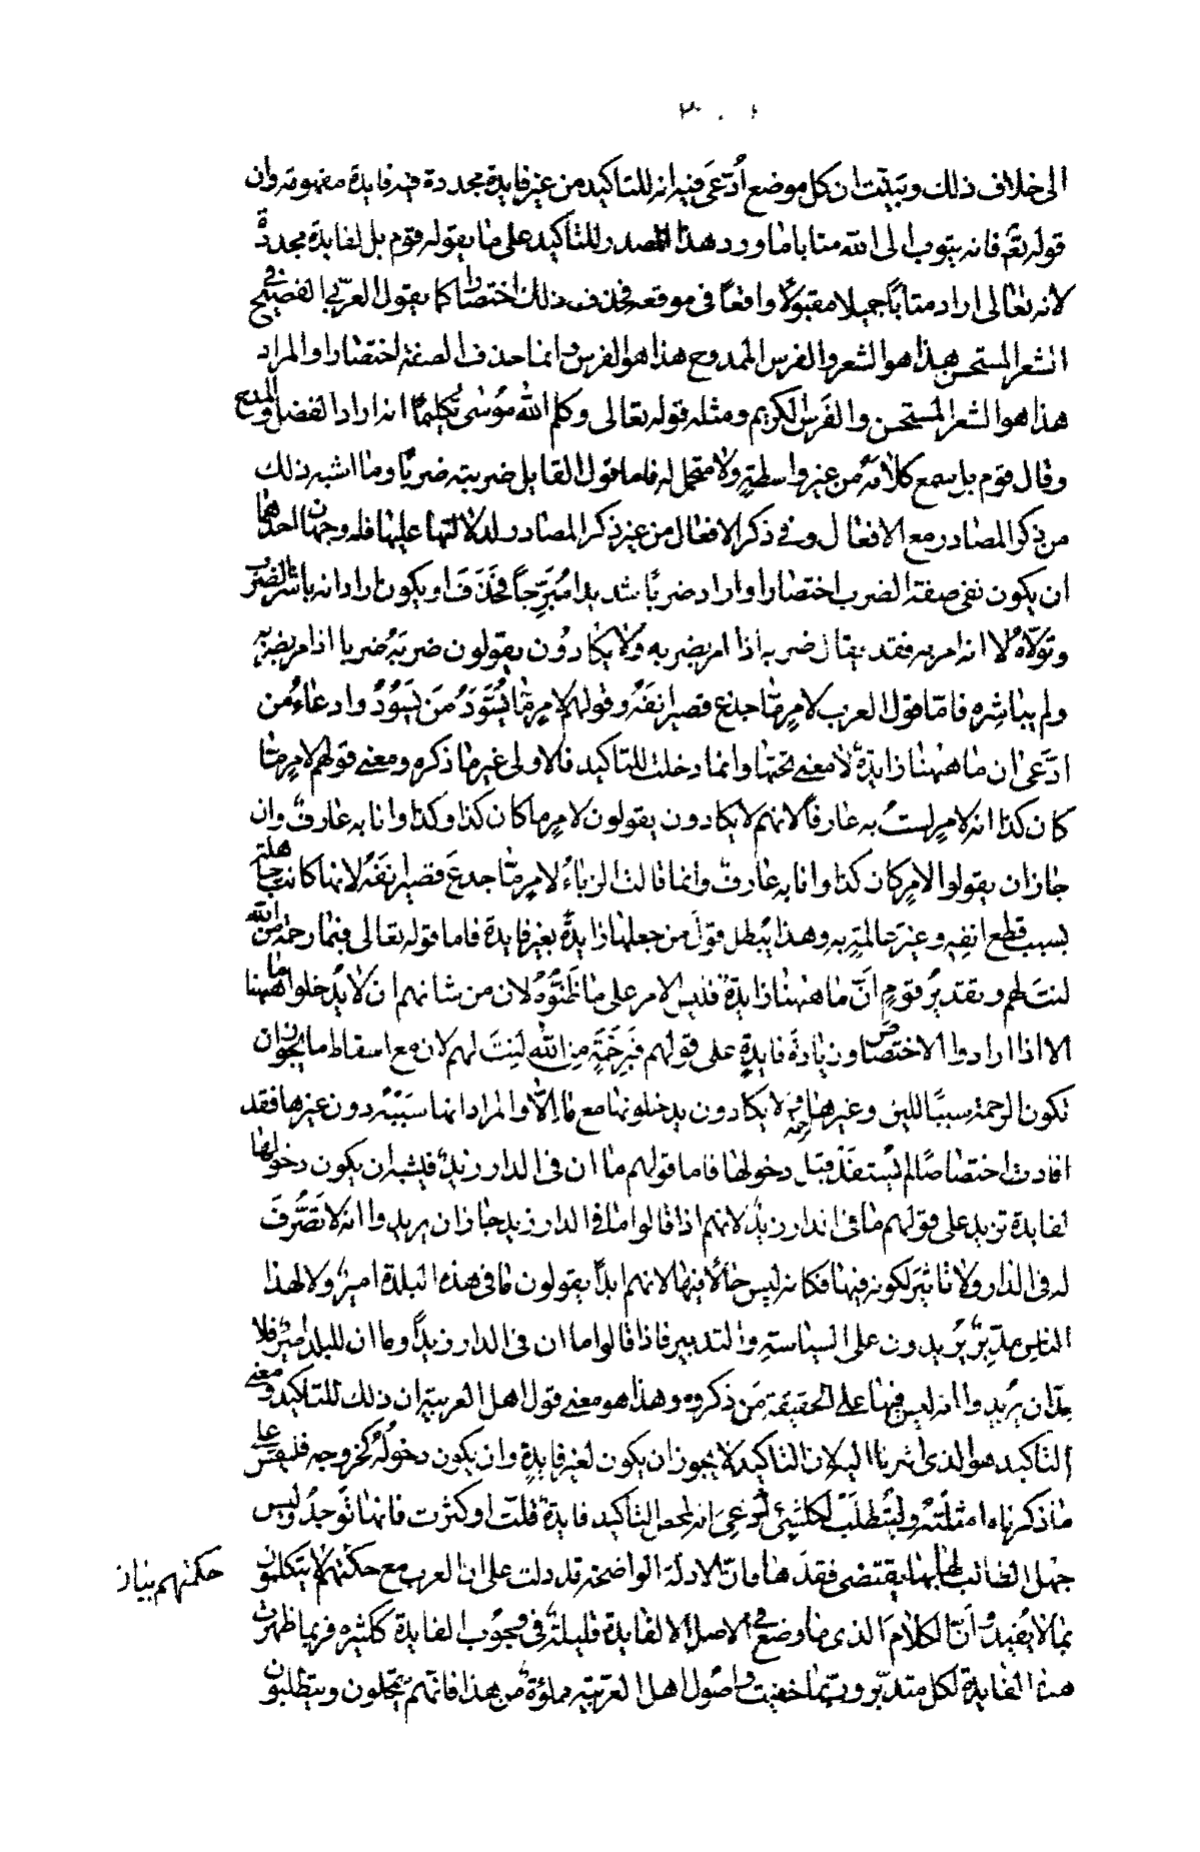 الى خلاف ذلك وتبينت ان كل موضع ادّعى فيه انه للتاكيد من غير فايدة مجددة فيه فايدة مفهومة وان
قوله تعالى فانه يتوب الى الله متابا ما ورد هذا المصدر للتأكيد على ما يقوله قوم بل لفايدة مجددة
لانه تعالى اراد متابًا جميلا مقبولًا واقعًا فى موقعه فحذف ذلك اختصارا كما يقول العربي الفصيح في
الشعر المستحسن هذا هو الشعر والفرس الممدوح هذا هو الفرس وانما حذف الصفة اختصارا والمراد
هذا هو الشعر المستحسن والفرس الكريم ومثله قوله تعالى وكلم الله موسى تكليمًا انه اراد الفضل والمدح
وقال قوم بل سمع كلامه من غير واسطة ولا متحمل له فاما قول القايل ضربته ضربًا وما اشبه ذلك
من ذكر المصادر مع الافعال وفي ذكر الافعال من غير ذكر المصادر لدلالتها عليها فله وجهان احدهما
ان يكون نفى صفة الضرب اختصارا واراد ضربًا شديدا مُبَرِّحًا فحَذَفَ او يكون اراد انه باشر الضرب
وتولّاه لا انه امر به فقد يقال ضربه اذا امر بضربه ولا يكادون يقولون ضربَهُ ضربا اذا امر بضربه
ولم يباشره فامّا قول العرب لامرٍ مّا جدع قصير انفَهُ وقولهم لامرٍ مّا يُسَوَّدُ مَن يَسُودُ وادعاءُ من
ادّعى ان ما ههنا زايدةٌ لا معنى تحتها وانما دخلت للتاكيد فالاولى غير ما ذكره ومعنى قولهم لامرٍ مّا
كان كذا انه لامرٍ لستُ به عارفًا لانهم لا يكادون يقولون لامرٍ ما كان كذا وكذا وانا به عارفٌ وان
جاز ان يقولوا لامرٍ كان كذا وانا به عارفٌ وانما قالت الزباءُ لامرٍ مّا جدعَ قصيرٌ انفَهُ لانها كانت جاهلة
بسبب قطع انفِه وغيرَ عالمةٍ به وهذا يُبطل قولَ من جعلها زايدةً بغير فايدة فاما قوله تعالى فبما رحمة من الله
لنتَ لهم وتقديرُ قومٍ انَّ ما ههنا زايدةٌ فليس الامر على ما ظَنُّوهُ لان من شانهم ان لا يُدخلوا ما ههنا
الا اذا ارادوا الاختصاص وزيادةَ فايدةٍ على قولهم فَبِرَحْمَةٍ مِنَ اللهِ لِنتَ لهم لان مع اسقاط ما يجوز ان
تكون الرحمة سببًا للين وغيرها ولا يكادون يدخلونها مع ما الا والمراد انها سَبَبُه دون غيرها فقد
افادت اختصاصًا لم نستفده قبل دخولها فاما قولهم ما ان فى الدار زيدٌ فيشبه ان يكون دخولها
لفايدة تزيد على قولهم ما فى الدار زيدٌ لانهم اذا قالوا ما فى الدار زيد جاز ان يريدوا انه لا تَصَرُّفَ
له فى الدار ولا تاثيرَ لكونه فيها فكانه ليس حالًّا فيها لانهم ابدًا يقولون ما فى هذه البلدة اميرٌ ولا لهذا
الناس مدبّرٌ يُريدون على السياسةِ والتدبير فاذا قالوا ما ان فى الدار زيدٌ وما ان للبلد اميرٌ فلا
بدّ ان يُريدوا انه ليس فيها على الحقيقة مَن ذكروه وهذا هو معنى قول اهل العربية ان ذلك للتاكيد ومعنى
التاكيد هو الذى اشرنا اليه لان التاكيد لا يجوز ان يكون لغير فايدةٍ وان يكون دخولُه كخروجه فليقس على
ما ذكرناه امثلتَه وليُتطلّب لكل شيءٍ ادُّعِيَ انه لمحض التاكيد فايدةٌ قلّت او كثرت فانها تُوجدُ وليس
جهل الطالب لها بها يقتضى فقدها فانّ الادلة الواضحة قد دلت على ان العرب مع حكمتهم لا يتكلمون
حكمتهم بيان
بما لا يُفيدُ وانّ الكلامَ الذى ما وضع فى الاصل الا لفايدة قليلهٌ فى وجُوب الفايدة ككثيره فربما ظهرت
هذه الفايدة لكل متدبّر وربّما خفيت واصُول اهل العربية مملوّةٌ من هذا فانّهم يتمحّلون ويتطلبون